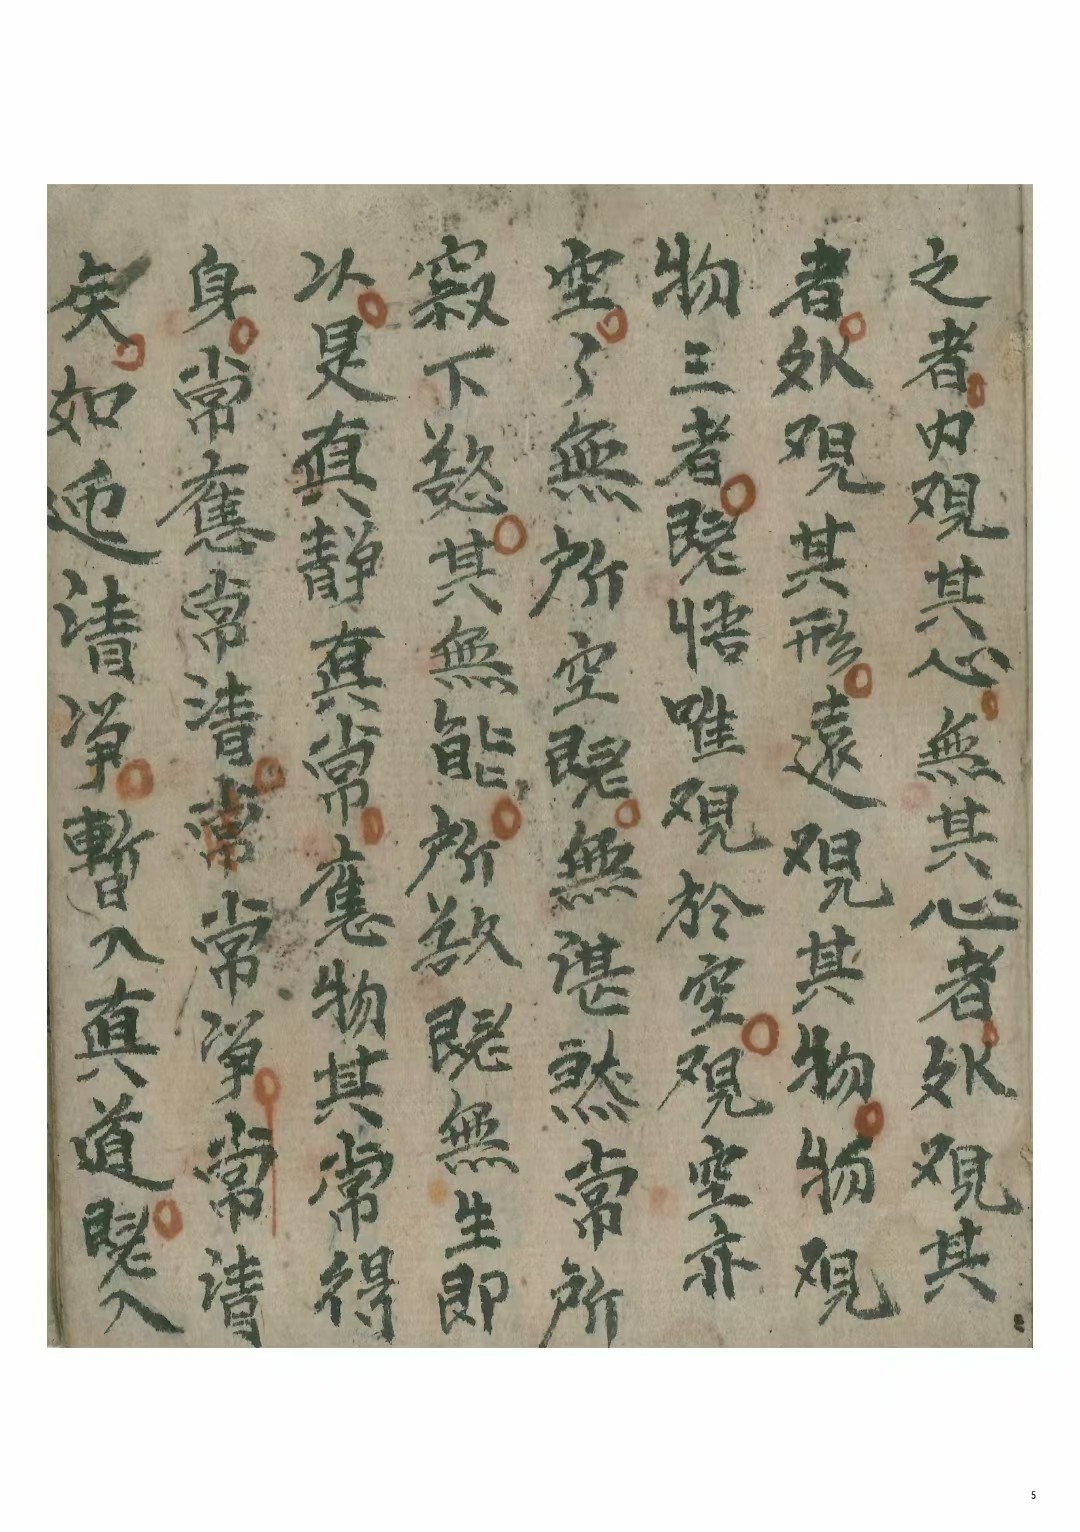 之者内观其心無其心者外观其
者外观其形遠观其物物观
物三者既悟唯观於空观空亦
空了無所空既無無湛然常所
寂下慾其無能所欲既無生即
以是真靜真常應物其常得
身常應常清常常淨常清
矣如迊清淨暫入真道既入
5